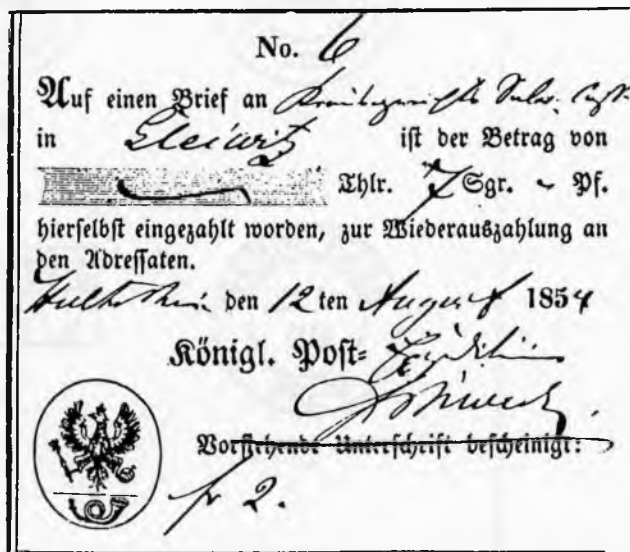 No. 6
Auf einen Brief an Kreisgerichts Salar. Casse
in Gleiwitz ist der Betrag von
Thlr. 7 Sgr. - Pf.
hierselbst eingezahlt worden, zur Wiederauszahlung an
den Adressaten.
den 12 ten August 1854
Königl. Post- Expedition
Vorstehende Unterschrift bescheinigt:
fr 2.